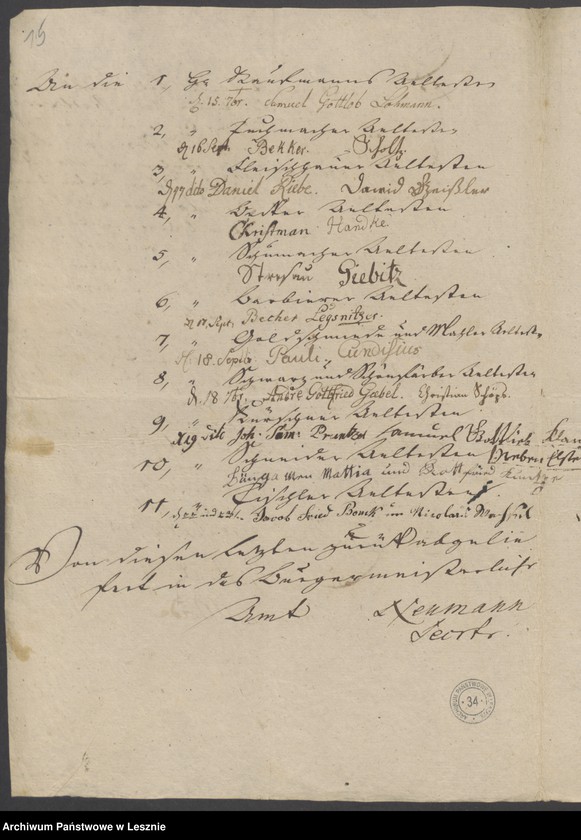 15
An die 1, H. Kaufmanns Aeltesten
d. 15. 7br. Samuel Gottlob Lohmann.
2, " Tuchmacher Aeltesten
d 16 Sept. Bekker. Scholtz
3, " Fleischhauer Aeltesten
d 17 dito Daniel Liebe. David Geißler
4, " Becker Aeltesten
Christman Handke
5, " Schumacher Aeltesten
Stresau Giebitz
6, " Barbierer Aeltesten
d 17 Sept. Becher
7, " Goldschmiede und Mahler Aeltesten
d. 18. Septb. Pauli. Cundisius
8, " Schwarz und Schönfärber Aeltesten
d. 18 7br. Andre Gottfried Gaebel. Christian
9, " Kürschner Aeltesten
d 19 dito Joh. Sam. Samuel
10, " Schneider Aeltesten
Mattia und Gottfried
11, " Tischler Aeltesten
Jacob Fried im Nicolaus
Von diesen letzten zurück abgelie
fert in das Burgermeisterliche
Amt Neumann
Secrtr.
ARCHIWUM PAŃSTWOWE
34
Archiwum Państwowe w Lesznie